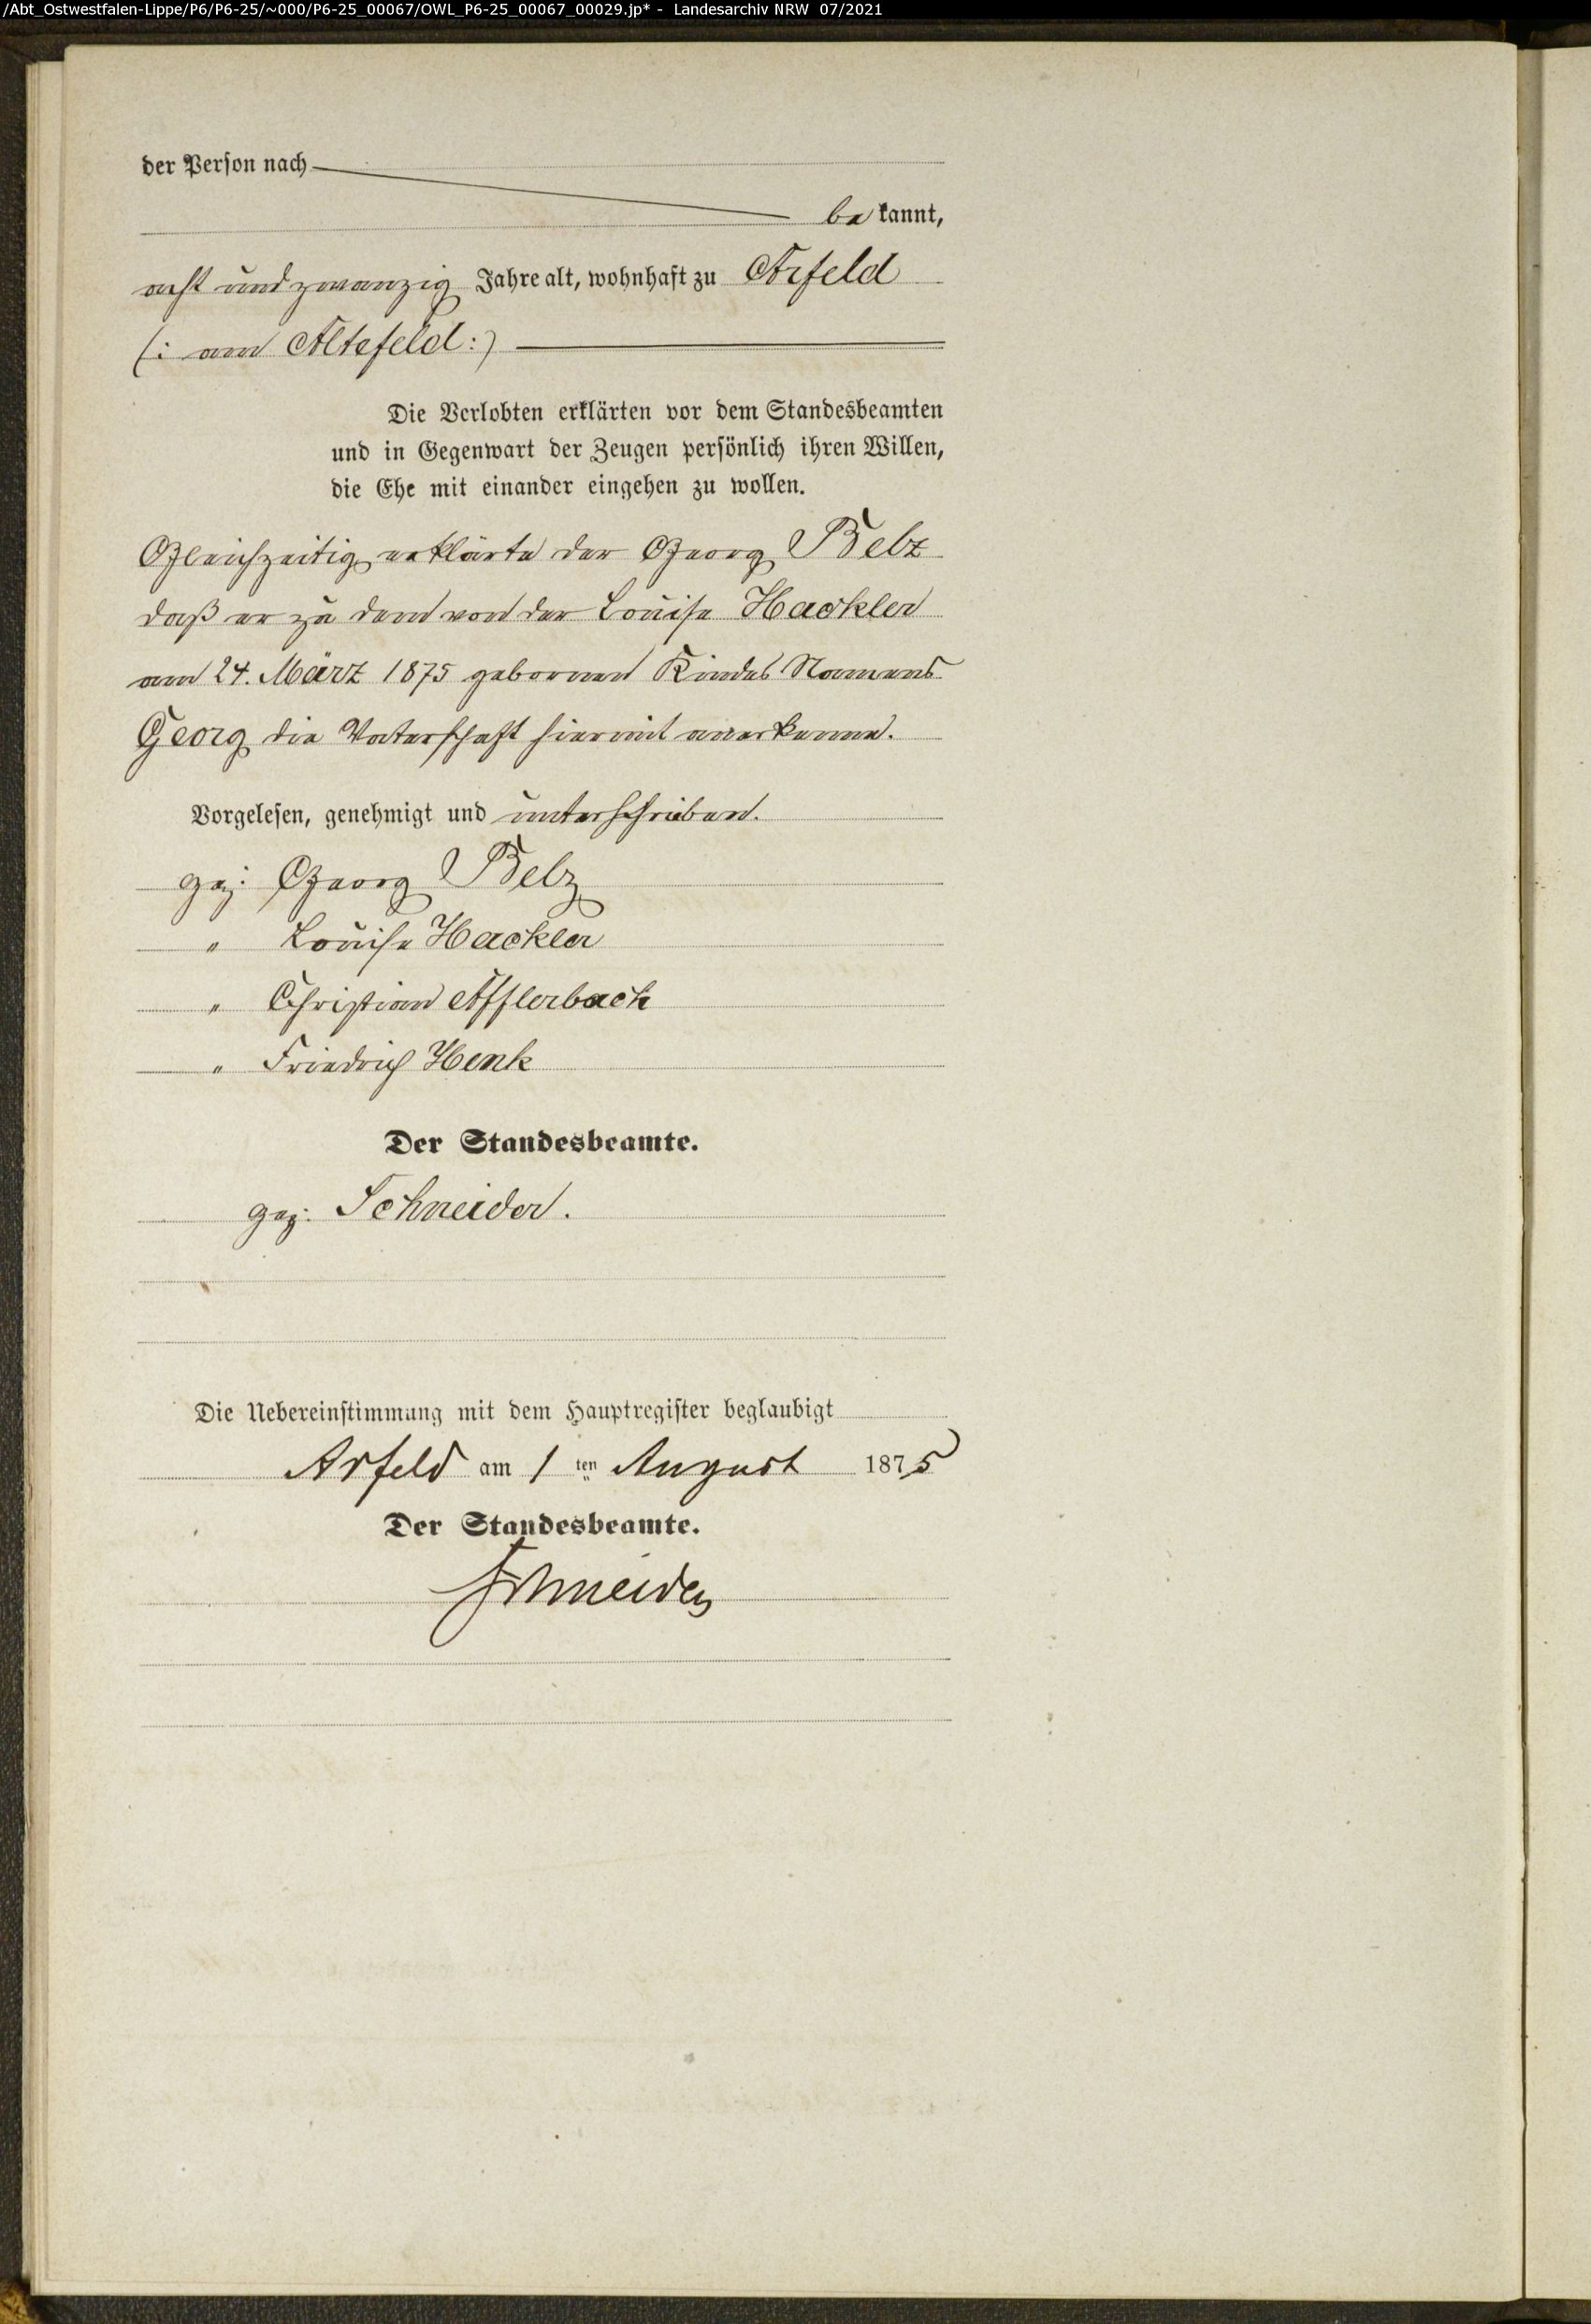 /Abt_Ostwestfalen-Lippe/P6/P6-25/~000/P6-25_00067/OWL_P6-25_00067_00029.jp* - Landesarchiv NRW 07/2021
der Person nach
be kannt,
acht und zwanzig Jahre alt, wohnhaft zu Arfeld
(: am Altefeld:)
Die Verlobten erklärten vor dem Standesbeamten
und in Gegenwart der Zeugen persönlich ihren Willen,
die Ehe mit einander eingehen zu wollen.
Gleichzeitig erklärte der Georg Belz
daß er zu dem von der Louise Hackler
am 24. März 1875 gebornen Kindes Namens
Georg die Vaterschaft hiermit anerkenne.
Vorgelesen, genehmigt und unterschrieben.
gez: Georg Belz
" Louise Hackler
" Christian Afflerbach
" Friedrich Henk
Der Standesbeamte.
gez: Schneider.
Die Uebereinstimmung mit dem Hauptregister beglaubigt
Arfeld am 1 ten August 1875
Der Standesbeamte.
Schneider